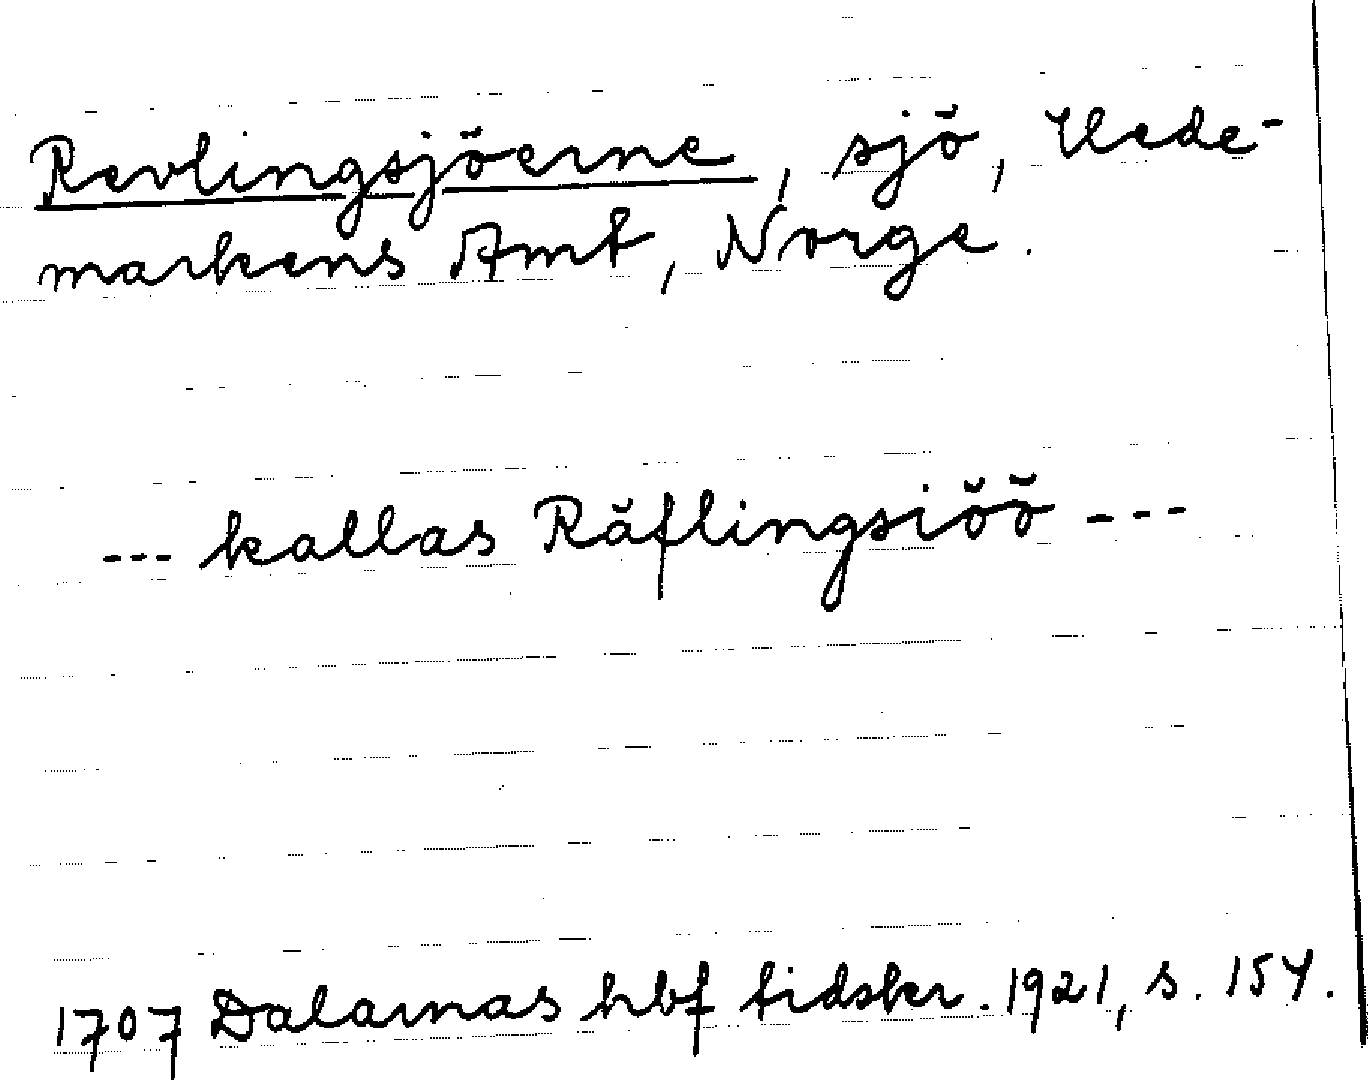 Revlingsjöerne, sjö, Hede-
markens Amt, Norge.
--- kallas Räflingsiöö ---
1707 Dalarnas hbf tidskr. 1921, s. 154.